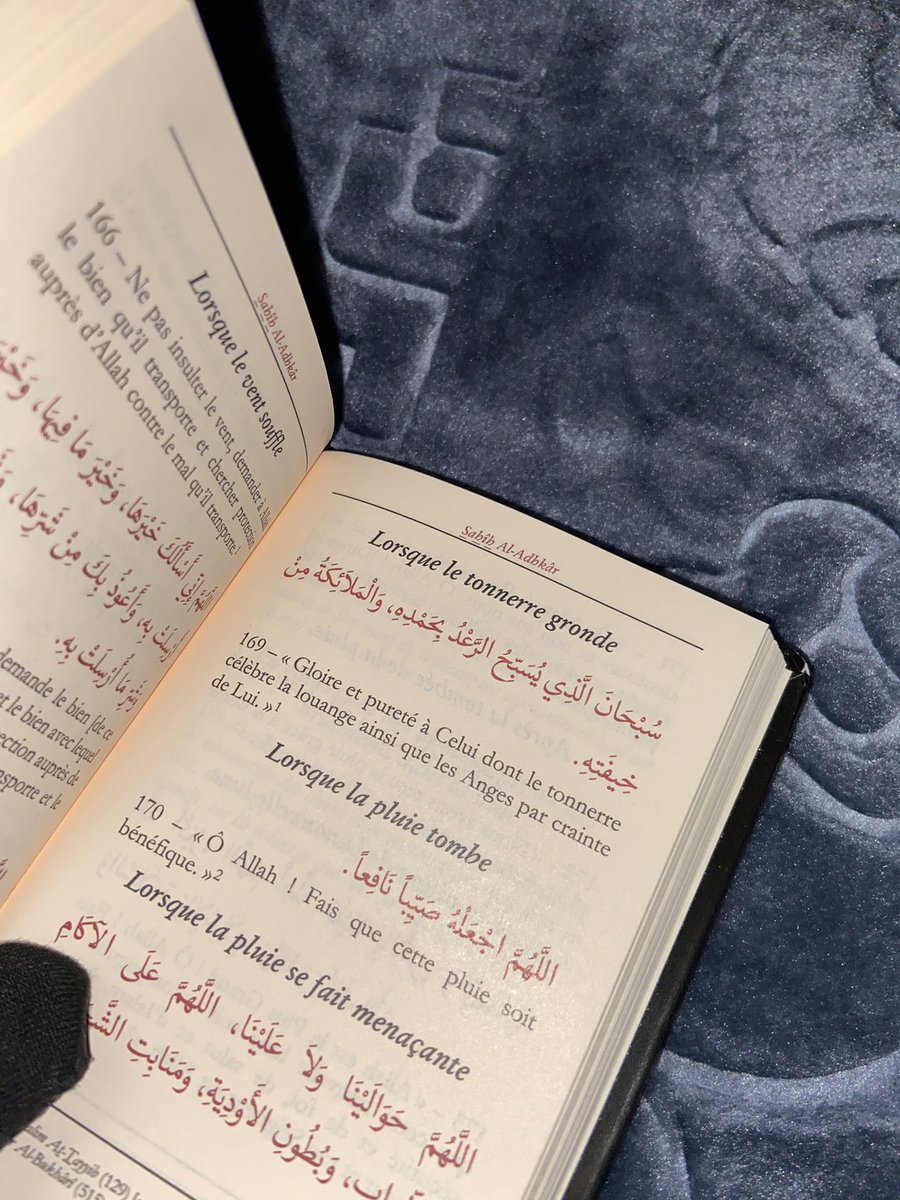 Sahîh Al-Adhkâr
Lorsque le vent souffle
166 – Ne pas insulter le vent, demander à Allah
le bien qu'il transporte et chercher protection
auprès d'Allah contre le mal qu'il transporte !
اللَّهُمَّ إِنِّي أَسْأَلُكَ خَيْرَهَا، وَخَيْرَ مَا فِيهَا، وَخَيْرَ
أُرْسِلَتْ بِهِ، وَأَعُوذُ بِكَ مِنْ شَرِّهَا،
وَشَرِّ مَا أُرْسِلَتْ بِهِ.
demande le bien (de ce
et le bien avec lequel
auprès de
et le
Sahîh Al-Adhkâr
Lorsque le tonnerre gronde
سُبْحَانَ الَّذِي يُسَبِّحُ الرَّعْدُ بِحَمْدِهِ، وَالْمَلاَئِكَةُ مِنْ
خِيفَتِهِ.
169 – « Gloire et pureté à Celui dont le tonnerre
célèbre la louange ainsi que les Anges par crainte
de Lui. »1
Lorsque la pluie tombe
اللَّهُمَّ اجْعَلْهُ صَيِّباً نَافِعاً.
170 – « Ô Allah ! Fais que cette pluie soit
bénéfique. »2
Lorsque la pluie se fait menaçante
اللَّهُمَّ حَوَالَيْنَا وَلاَ عَلَيْنَا، اللَّهُمَّ عَلَى الآكَامِ
وَبُطُونِ الأَوْدِيَةِ، وَمَنَابِتِ
At-Tayyib (129)
Al-Bukhârî